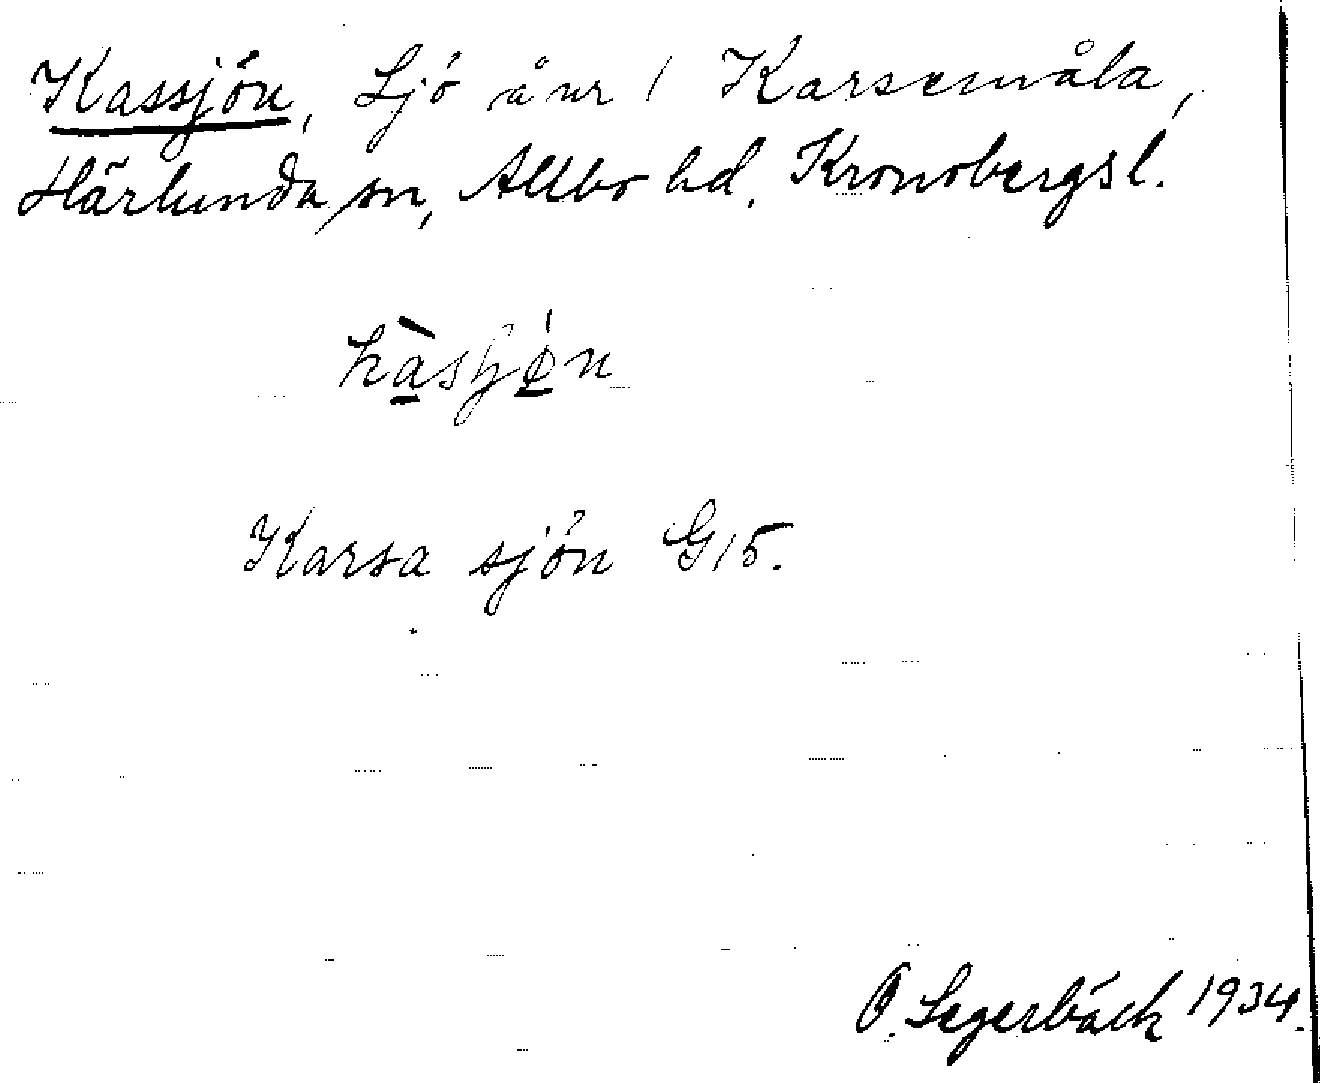 Kassjön, Sjö å nr 1 Karsemåla,
Härlunda sn, Allbo hd. Kronobergs l.
kàsjø̀n
Karsa sjön G15.
O. Segerbäck 1934.